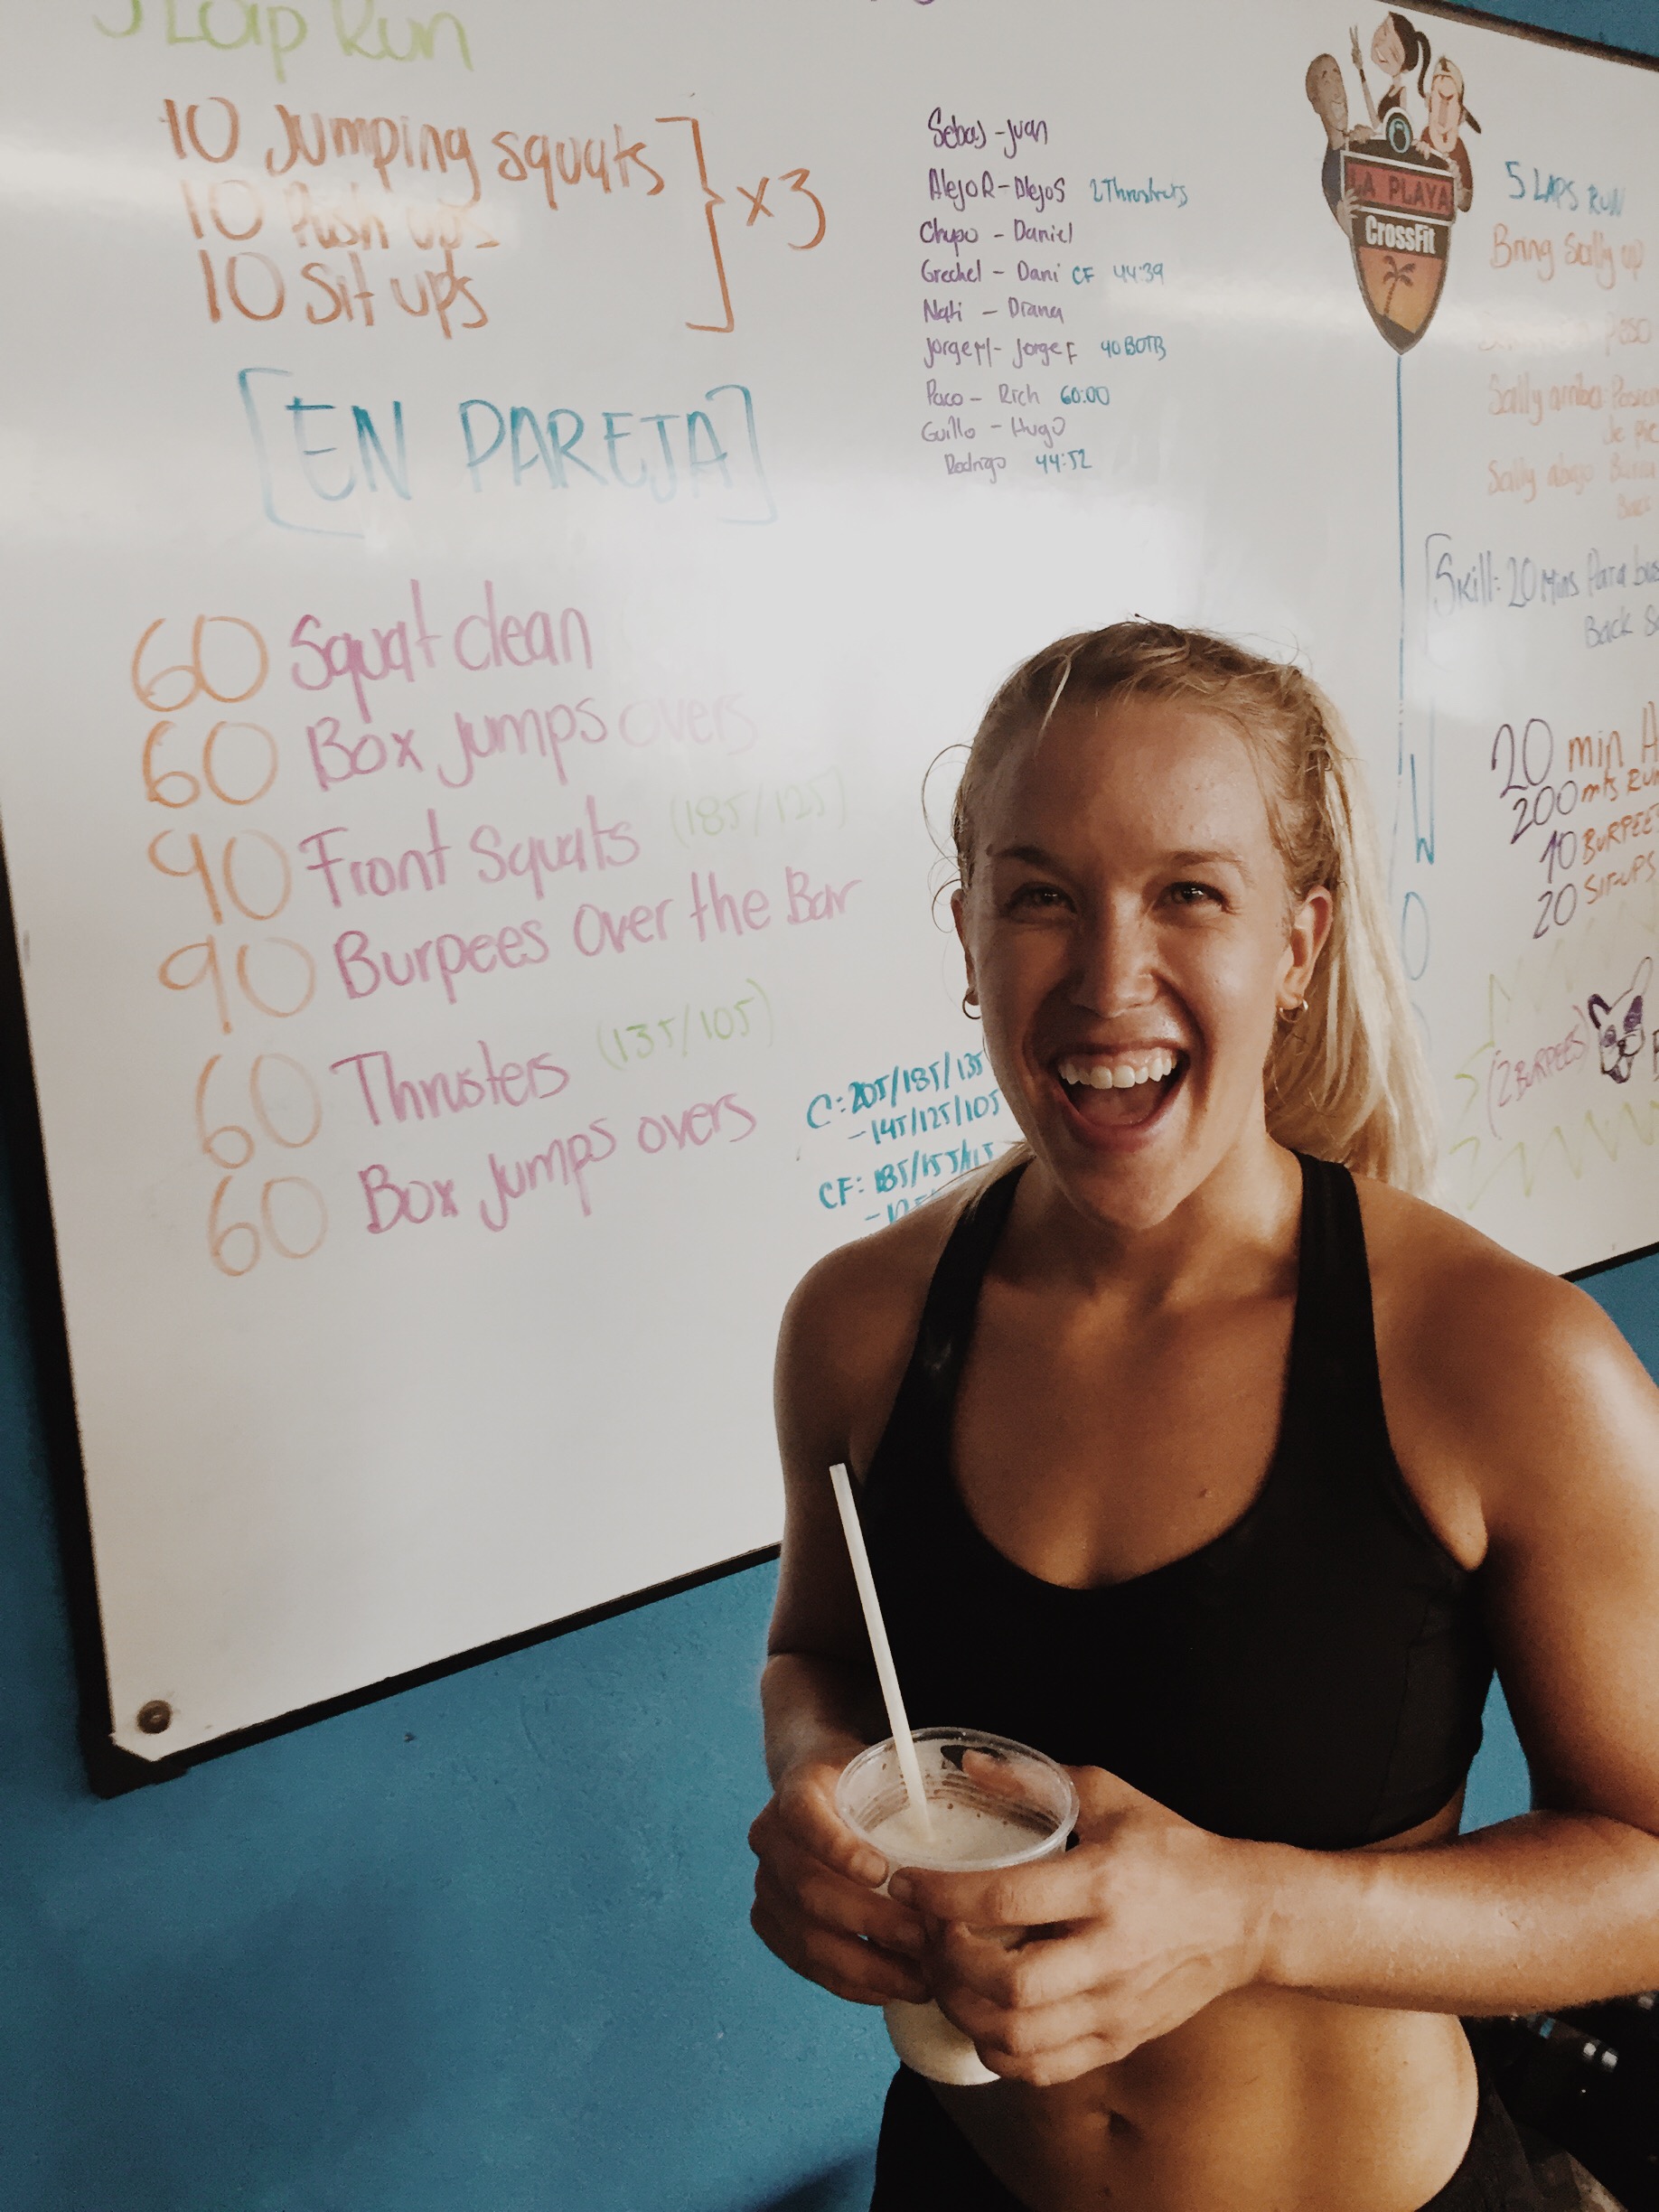 Lap Run
10 Jumping squats
10 Push ups
10 Sit ups
x3
[EN PAREJA]
60 Squat clean
60 Box jumps overs
90 Front Squats (185/125)
90 Burpees Over the Bar
60 Thrusters (135/105)
60 Box jumps overs
C: 205/185/135
-145/125/105
CF: 185/155/115
Sebas - Juan
AlejoR - AlejoS
Chupo - Daniel
Grechel - Dani CF 44:39
Nati - Diana
JorgeM - JorgeF 40 BOTB
Paco - Rich 60:00
Guillo - Hugo
Rodrigo 44:52
LA PLAYA
CrossFit
5 LAPS RUN
Bring Sally up
peso
Sally arriba:
Sally abajo
Back
Skill: 20 Mins Para
Back
W
O
20 min
200 mts RUN
10 BURPEES
20 SIT-UPS
(2 BURPEES)